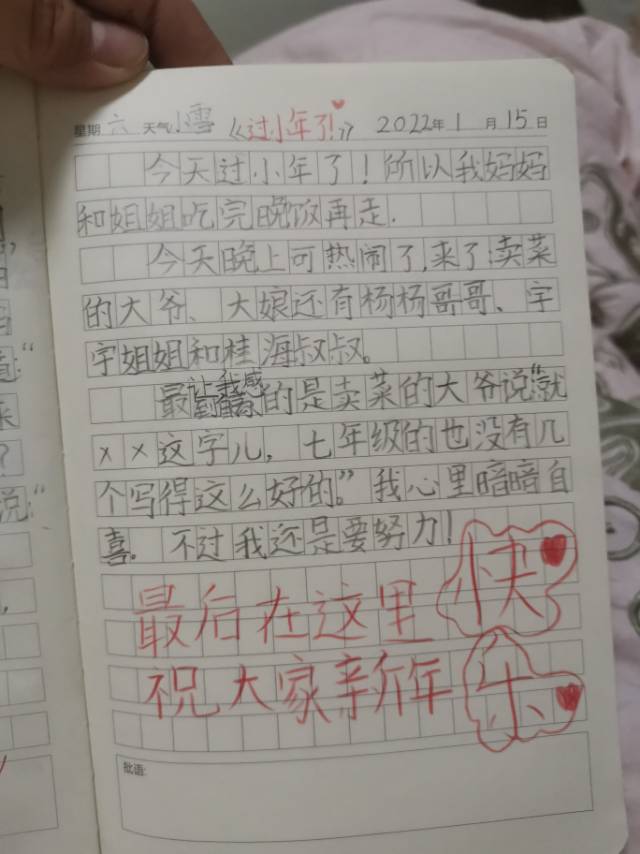 星期 六 天气 小雪 《过小年了!》 2022年 1 月 15 日
今天过小年了!所以我妈妈
和姐姐吃完晚饭再走.
今天晚上可热闹了,来了卖菜
的大爷、大娘还有杨杨哥哥、宇
宇姐姐和桂海叔叔。
最让我感的是卖菜的大爷说“就
××这字儿,七年级的也没有几
个写得这么好的。”我心里暗暗自
喜。不过我还是要努力!
最后在这里快
祝大家新年乐
批语: